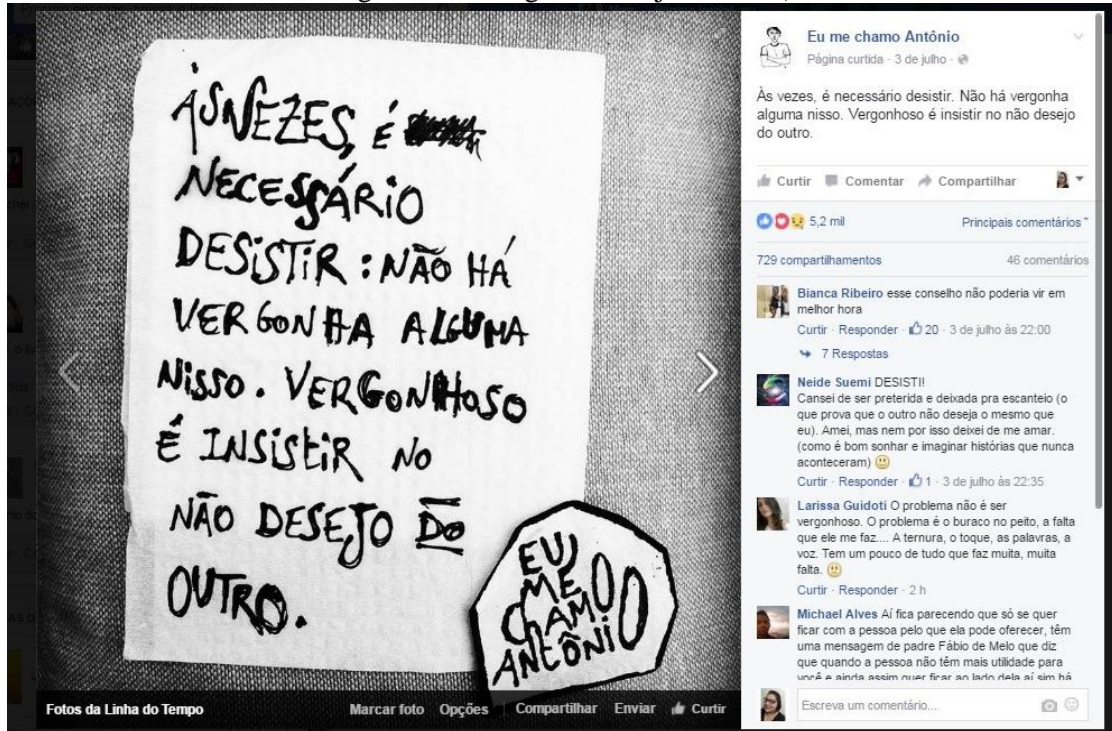 ÀS VEZES, É
NECESSÁRIO
DESISTIR: NÃO HÁ
VERGONHA ALGUMA
NISSO. VERGONHOSO
É INSISTIR NO
NÃO DESEJO DO
OUTRO.
EU
ME
CHAMO
ANTÔNIO
Fotos da Linha do Tempo
Marcar foto Opções Compartilhar Enviar Curtir
Eu me chamo Antônio
Página curtida · 3 de julho ·
Às vezes, é necessário desistir. Não há vergonha
alguma nisso. Vergonhoso é insistir no não desejo
do outro.
Curtir Comentar Compartilhar
5,2 mil Principais comentários
729 compartilhamentos 46 comentários
Bianca Ribeiro esse conselho não poderia vir em
melhor hora
Curtir · Responder · 20 · 3 de julho às 22:00
7 Respostas
Neide Suemi DESISTI!
Cansei de ser preterida e deixada pra escanteio (o
que prova que o outro não deseja o mesmo que
eu). Amei, mas nem por isso deixei de me amar.
(como é bom sonhar e imaginar histórias que nunca
aconteceram)
Curtir · Responder · 1 · 3 de julho às 22:35
Larissa Guidoti O problema não é ser
vergonhoso. O problema é o buraco no peito, a falta
que ele me faz.... A ternura, o toque, as palavras, a
voz. Tem um pouco de tudo que faz muita, muita
falta.
Curtir · Responder · 2 h
Michael Alves Aí fica parecendo que só se quer
ficar com a pessoa pelo que ela pode oferecer, têm
uma mensagem de padre Fábio de Melo que diz
que quando a pessoa não têm mais utilidade para
você e ainda assim quer ficar ao lado dela aí sim há
Escreva um comentário...